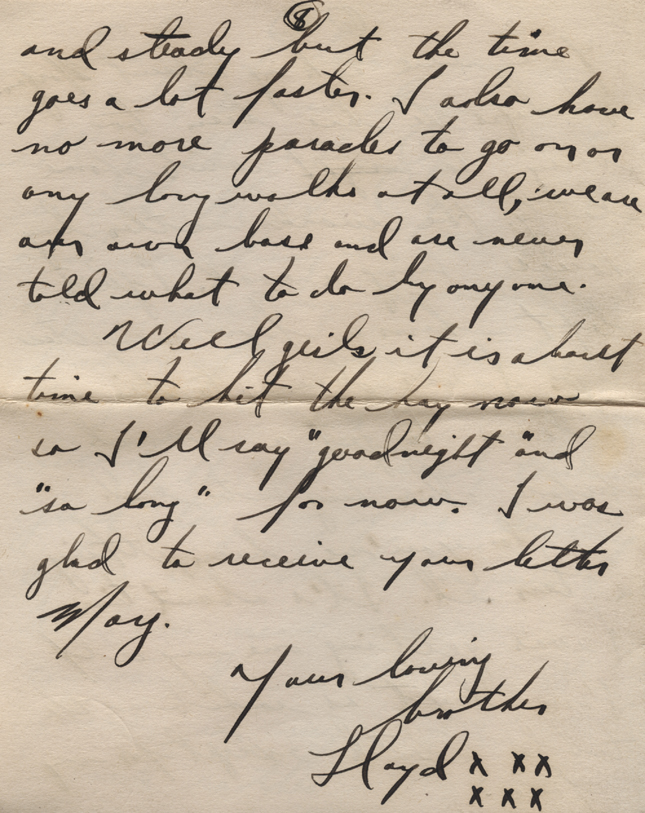 8
and steady but the time
goes a lot faster. I also have
no more parades to go on or
any long walks at all, we are
our own boss and are never
told what to do by anyone.
Well girls it is about
time to hit the hay now
so I'll say "goodnight" and
"so long" for now. I was
glad to receive your letter
May.
Your loving
brother
Lloyd x xx
x x x